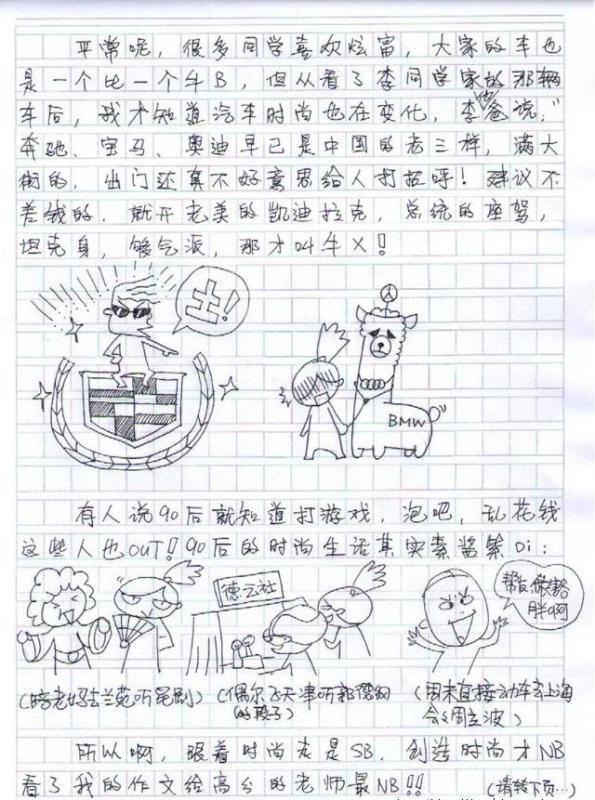 平常呢，很多同学喜欢炫富，大家的车也
是一个比一个牛B，但从看了李同学家的那辆
车后，我才知道汽车时尚也在变化，李他爸说，"
奔驰、宝马、奥迪早已是中国的老三样，满大
街的，出门还真不好意思给人打招呼！建议不
差钱的，就开老美的凯迪拉克，总统的座驾，
坦克身，够气派，那才叫牛X！
土！
BMW
有人说90后就知道打游戏，泡吧，乱花钱
这些人也OUT！90后的时尚生活其实素酱紫Di：
德云社
帮瓦做
胖啊
(陪老妈去兰苑听昆剧)
(偶尔飞天津听郭德纲
的段子)
(周末直接动车去上海
会会周立波)
所以啊，跟着时尚走是SB，创造时尚才NB
看了我的作文给高分的老师最NB！！
(请转下页…)